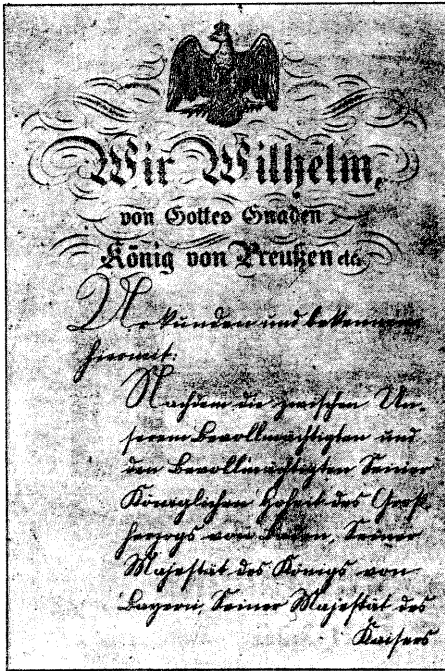 Wir Wilhelm,
von Gottes Gnaden
König von Preußen etc.
Urkunden und bekennen
hiermit:
Nachdem die zwischen Un-
serem Bevollmächtigten und
den Bevollmächtigten Seiner
Königlichen Hoheit des Groß-
herzogs von Baden, Seiner
Majestät des Königs von
Bayern, Seiner Majestät des
Kaisers